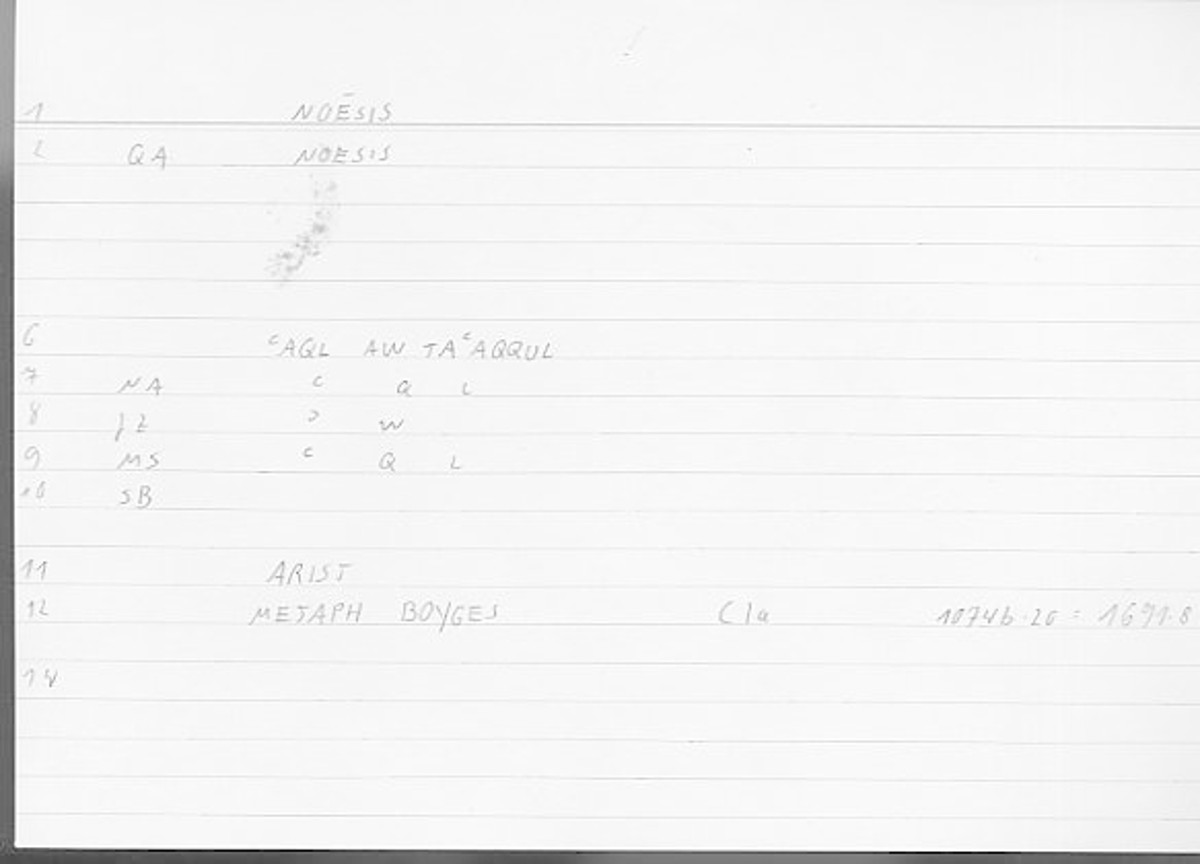 1 NOĒSIS
2 QA NOESIS
6 ʿAQL AW TAʿAQQUL
7 NA ʿ Q L
8 JZ ʾ W
9 MS ʿ Q L
10 SB
11 ARIST
12 METAPH BOYGES C1a 1074b.20 = 1691.8
14